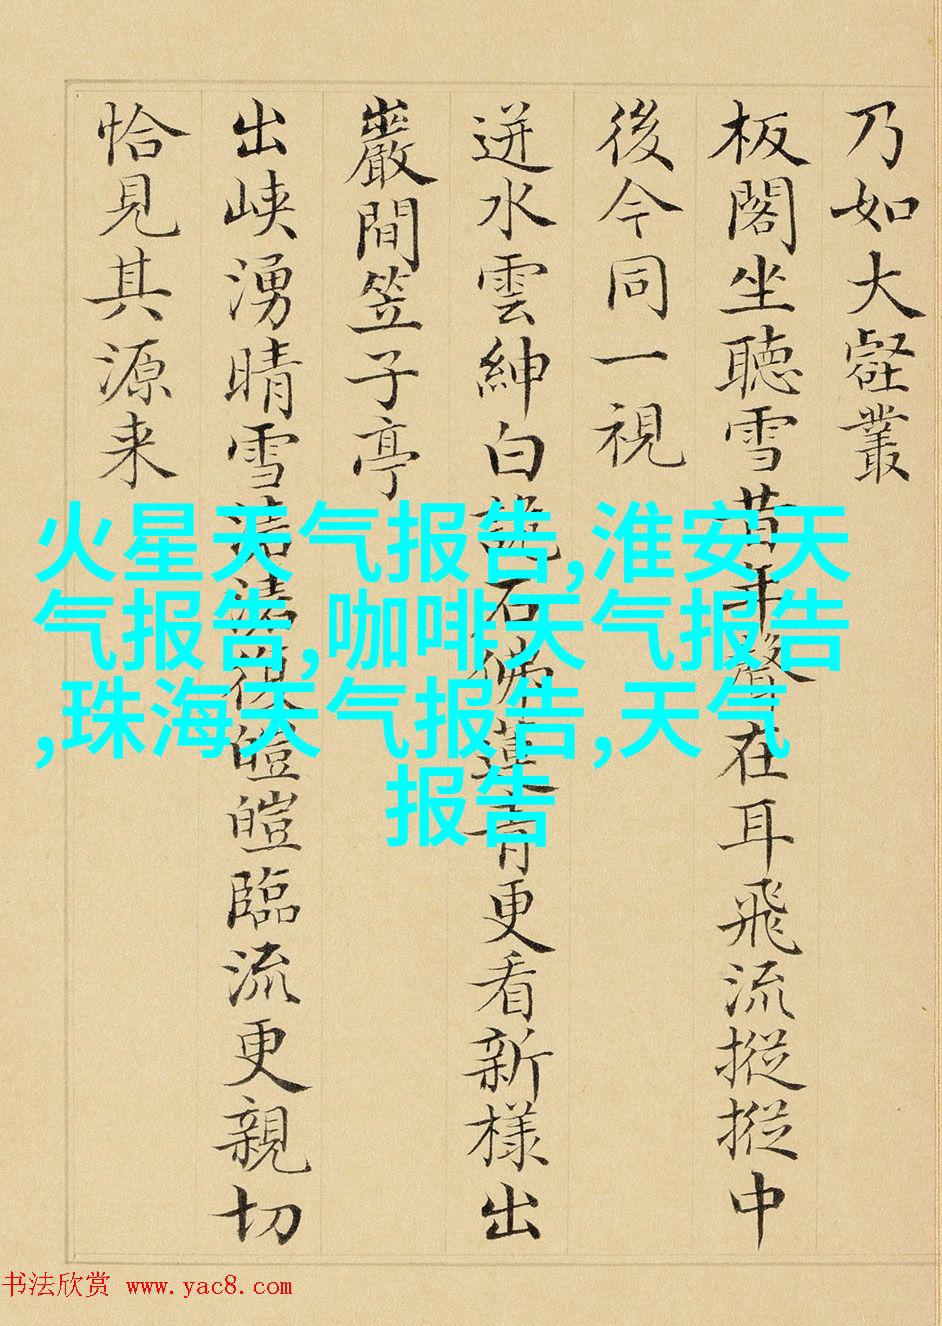 乃如大壑叢
板閣坐聽雪昔年聲在耳飛流摐摐中
後今同一視
迸水雲紳白說石佛蓮青更看新様出
巖間笠子亭
出峡湧晴雪皚皚臨流更親切
恰見其源来
火星天气报告,淮安天
气报告,咖啡天气报告
,珠海天气报告,天气
报告
书法欣赏 www.yac8.com